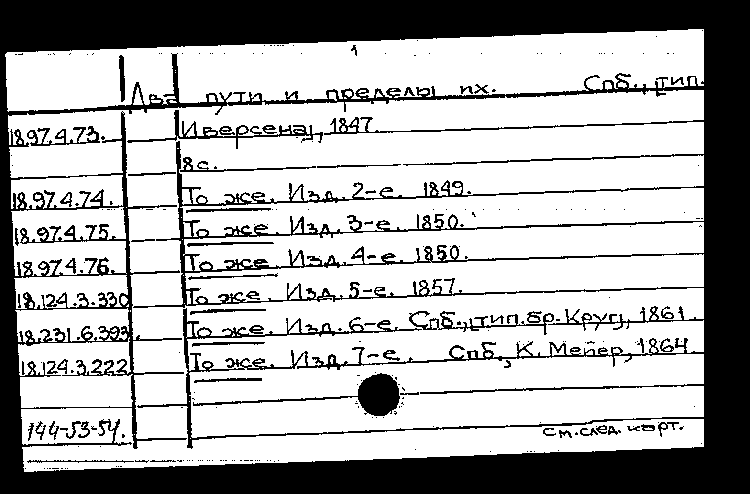 1
Два пути и пределы их. Спб., [тип.
18.97.4.73. Иверсена], 1847.
8 с.
18.97.4.74. То же. Изд. 2-е. 1849.
18.97.4.75. То же. Изд. 3-е. 1850.
18.97.4.76. То же. Изд. 4-е. 1850.
18.124.3.330 То же. Изд. 5-е. 1857.
18.231.6.393. То же. Изд. 6-е. Спб., [тип. бр. Круг], 1861.
18.124.3.222 То же. Изд. 7-е. Спб., К. Мейер, 1864.
144-53-54. см. след. карт.